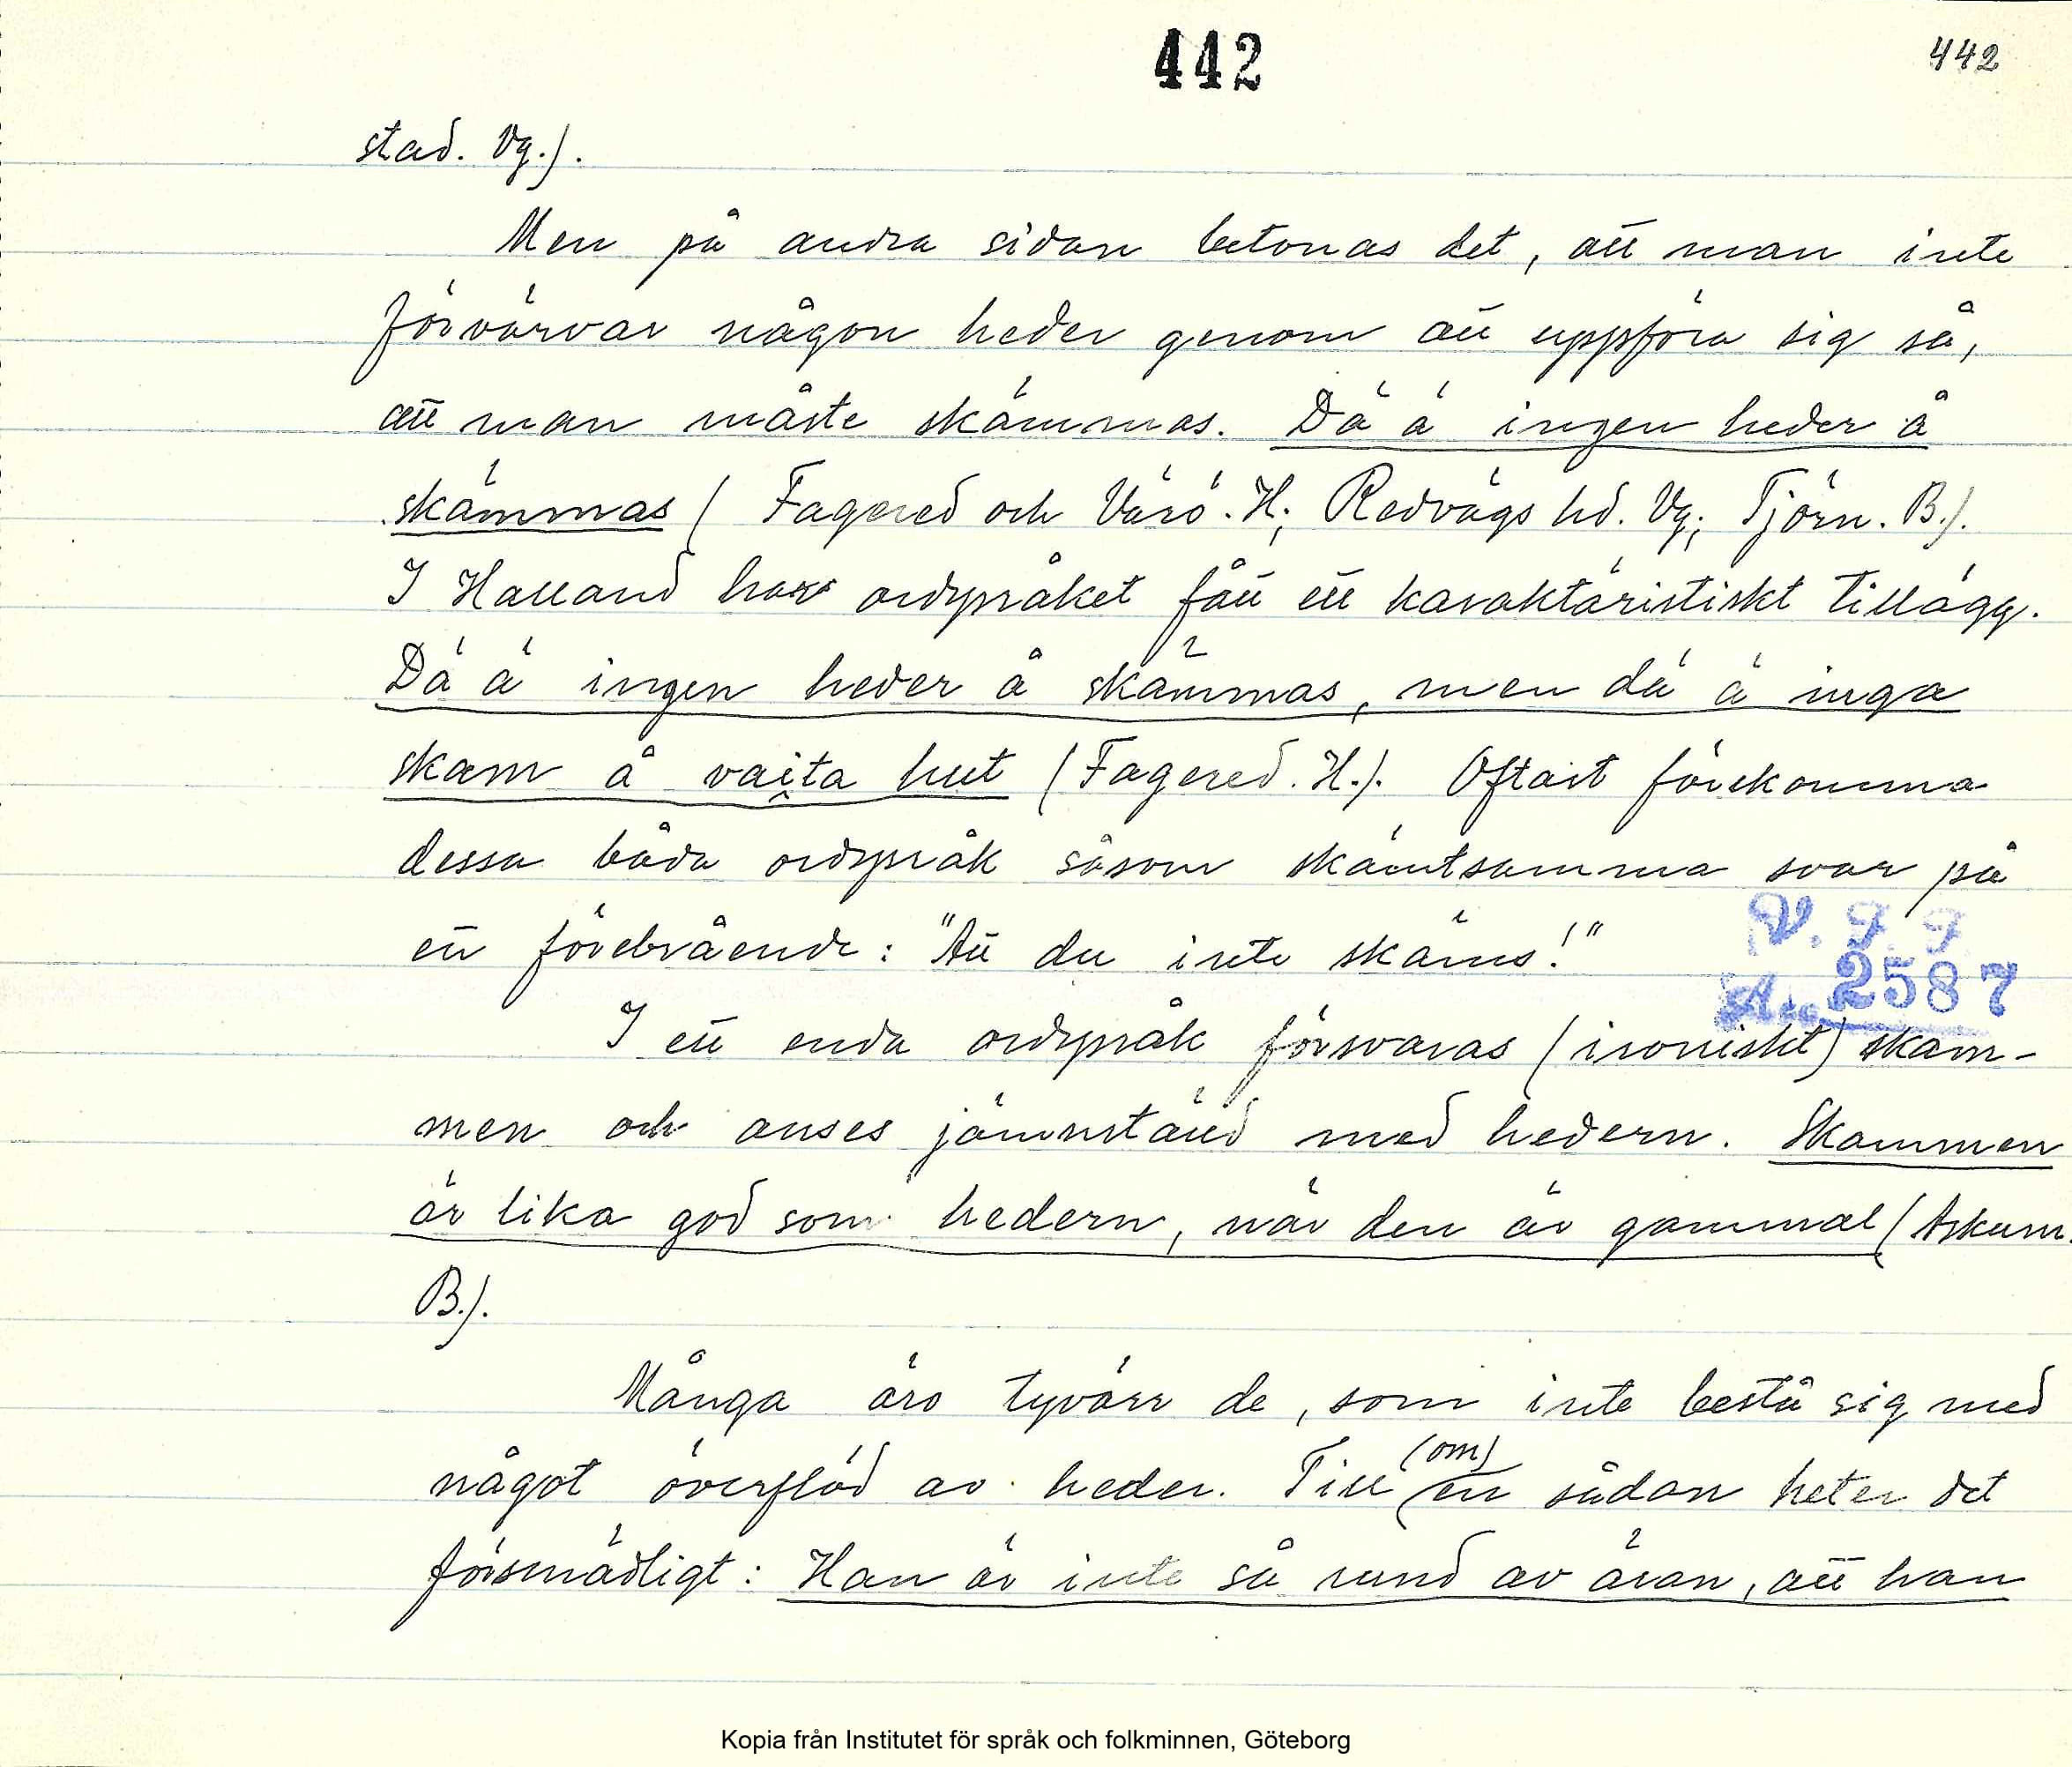 442
442
stad. Vg.).
Men på andra sidan betonas det, att man inte
förvärvar någon heder genom att uppföra sig så,
att man måste skämmas. Dä ä ingen heder å
skämmas (Fagered och Värö. H.; Redvägs hd. Vg.; Tjörn. B.).
I Halland har ordspråket fått ett karaktäristiskt tillägg.
Dä ä ingen heder å skämmas, men dä ä inga
skam å vai̯ta hut (Fagered. H.). Oftast förekomma
dessa båda ordspråk såsom skämtsamma svar på
ett förebrående: "Att du inte skäms!"
V. F. F
Acc. 2587
I ett enda ordspråk försvaras (ironiskt) skam-
men och anses jämnställd med hedern. Skammen
är lika god som hedern, när den är gammal (Askum.
B.).
Många äro tyvärr de, som inte bestå sig med
något överflöd av heder. Till (om) en sådan heter det
försmädligt: Han är inte så rund av äran, att han
Kopia från Institutet för språk och folkminnen, Göteborg